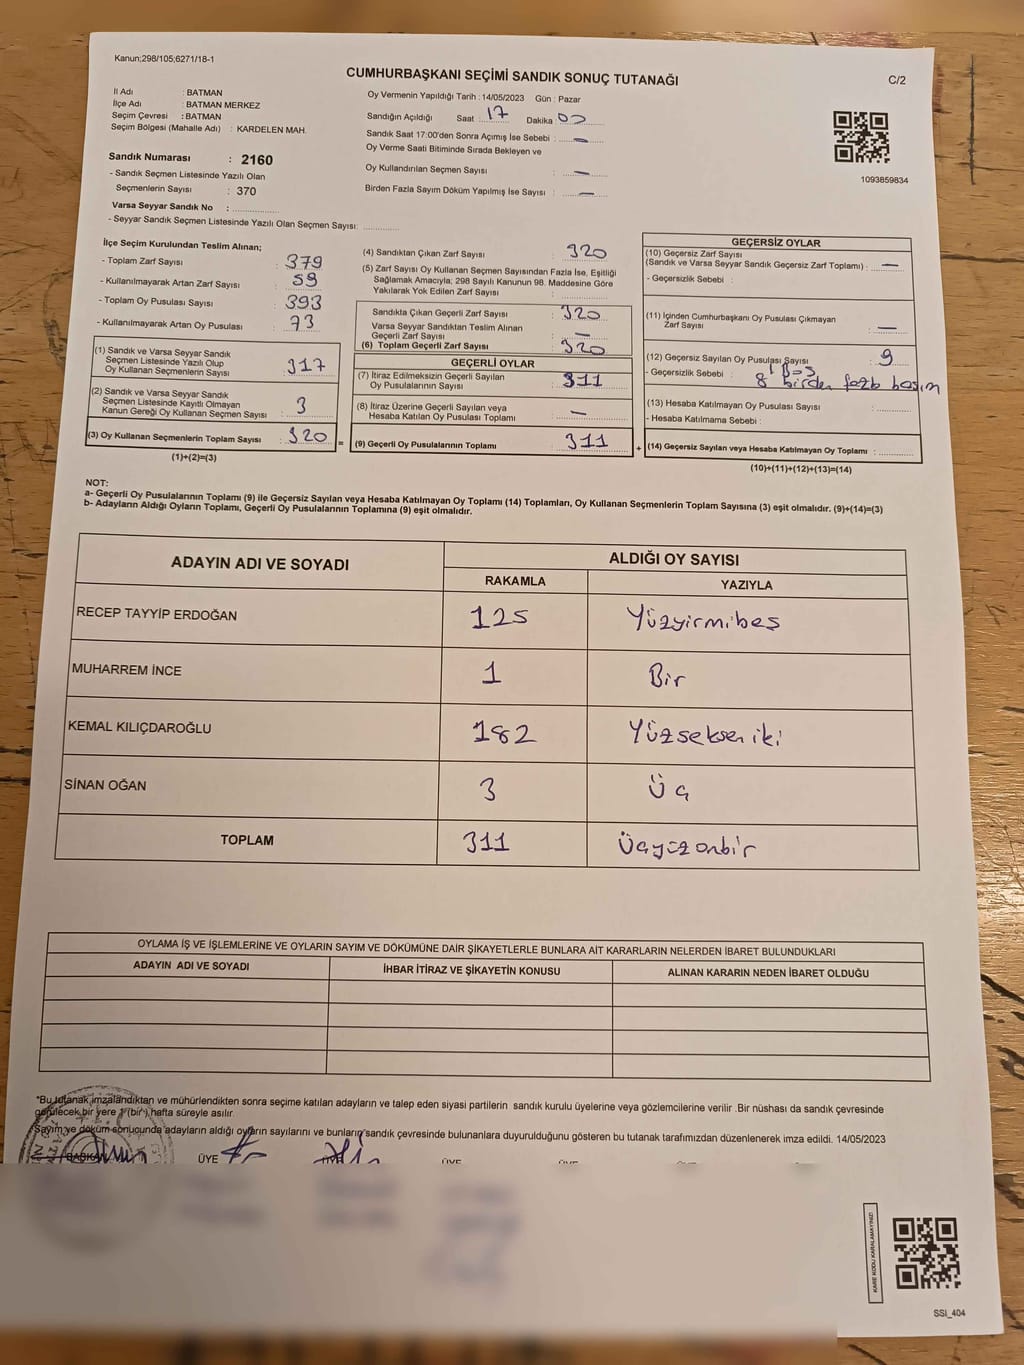 Kanun;298/105;6271/18-1
CUMHURBAŞKANI SEÇİMİ SANDIK SONUÇ TUTANAĞI
C/2
İl Adı : BATMAN
İlçe Adı : BATMAN MERKEZ
Seçim Çevresi : BATMAN
Seçim Bölgesi (Mahalle Adı) : KARDELEN MAH.
Sandık Numarası : 2160
- Sandık Seçmen Listesinde Yazılı Olan
Seçmenlerin Sayısı : 370
Varsa Seyyar Sandık No :
- Seyyar Sandık Seçmen Listesinde Yazılı Olan Seçmen Sayısı:
Oy Vermenin Yapıldığı Tarih : 14/05/2023 Gün : Pazar
Sandığın Açıldığı Saat 17 Dakika 00
Sandık Saat 17:00'den Sonra Açımış İse Sebebi : —
Oy Verme Saati Bitiminde Sırada Bekleyen ve
Oy Kullandırılan Seçmen Sayısı : —
Birden Fazla Sayım Döküm Yapılmış İse Sayısı : —
1093859834
İlçe Seçim Kurulundan Teslim Alınan;
- Toplam Zarf Sayısı : 379
- Kullanılmayarak Artan Zarf Sayısı : 59
- Toplam Oy Pusulası Sayısı : 393
- Kullanılmayarak Artan Oy Pusulası : 73
(1) Sandık ve Varsa Seyyar Sandık
Seçmen Listesinde Yazılı Olup
Oy Kullanan Seçmenlerin Sayısı : 317
(2) Sandık ve Varsa Seyyar Sandık
Seçmen Listesinde Kayıtlı Olmayan
Kanun Gereği Oy Kullanan Seçmen Sayısı : 3
(3) Oy Kullanan Seçmenlerin Toplam Sayısı : 320 =
(1)+(2)=(3)
(4) Sandıktan Çıkan Zarf Sayısı : 320
(5) Zarf Sayısı Oy Kullanan Seçmen Sayısından Fazla İse, Eşitliği
Sağlamak Amacıyla; 298 Sayılı Kanunun 98. Maddesine Göre
Yakılarak Yok Edilen Zarf Sayısı :
Sandıkta Çıkan Geçerli Zarf Sayısı : 320
Varsa Seyyar Sandıktan Teslim Alınan
Geçerli Zarf Sayısı : —
(6) Toplam Geçerli Zarf Sayısı : 320
GEÇERLİ OYLAR
(7) İtiraz Edilmeksizin Geçerli Sayılan
Oy Pusulalarının Sayısı : 311
(8) İtiraz Üzerine Geçerli Sayılan veya
Hesaba Katılan Oy Pusulası Toplamı : —
(9) Geçerli Oy Pusulalarının Toplamı : 311 +
GEÇERSİZ OYLAR
(10) Geçersiz Zarf Sayısı
(Sandık ve Varsa Seyyar Sandık Geçersiz Zarf Toplamı) : —
- Geçersizlik Sebebi :
(11) İçinden Cumhurbaşkanı Oy Pusulası Çıkmayan
Zarf Sayısı : —
(12) Geçersiz Sayılan Oy Pusulası Sayısı : 9
- Geçersizlik Sebebi : 1 Boş
8 birden fazla basım
(13) Hesaba Katılmayan Oy Pusulası Sayısı :
- Hesaba Katılmama Sebebi :
(14) Geçersiz Sayılan veya Hesaba Katılmayan Oy Toplamı :
(10)+(11)+(12)+(13)=(14)
NOT:
a- Geçerli Oy Pusulalarının Toplamı (9) ile Geçersiz Sayılan veya Hesaba Katılmayan Oy Toplamı (14) Toplamları, Oy Kullanan Seçmenlerin Toplam Sayısına (3) eşit olmalıdır. (9)+(14)=(3)
b- Adayların Aldığı Oyların Toplamı, Geçerli Oy Pusulalarının Toplamına (9) eşit olmalıdır.
ADAYIN ADI VE SOYADI
ALDIĞI OY SAYISI
RAKAMLA YAZIYLA
RECEP TAYYİP ERDOĞAN 125 Yüzyirmibeş
MUHARREM İNCE 1 Bir
KEMAL KILIÇDAROĞLU 182 Yüzseksen iki
SİNAN OĞAN 3 Üç
TOPLAM 311 Üçyüzonbir
OYLAMA İŞ VE İŞLEMLERİNE VE OYLARIN SAYIM VE DÖKÜMÜNE DAİR ŞİKAYETLERLE BUNLARA AİT KARARLARIN NELERDEN İBARET BULUNDUKLARI
ADAYIN ADI VE SOYADI İHBAR İTİRAZ VE ŞİKAYETİN KONUSU ALINAN KARARIN NEDEN İBARET OLDUĞU
*Bu tutanak imzalandıktan ve mühürlendikten sonra seçime katılan adayların ve talep eden siyasi partilerin sandık kurulu üyelerine veya gözlemcilerine verilir .Bir nüshası da sandık çevresinde
görülecek bir yere 1 (bir) hafta süreyle asılır.
Sayım ve döküm sonucunda adayların aldığı oyların sayılarını ve bunların sandık çevresinde bulunanlara duyurulduğunu gösteren bu tutanak tarafımızdan düzenlenerek imza edildi. 14/05/2023
BAŞKAN ÜYE ÜYE ÜYE
KARE KODU KARALAMAYINIZ!
SSI_404